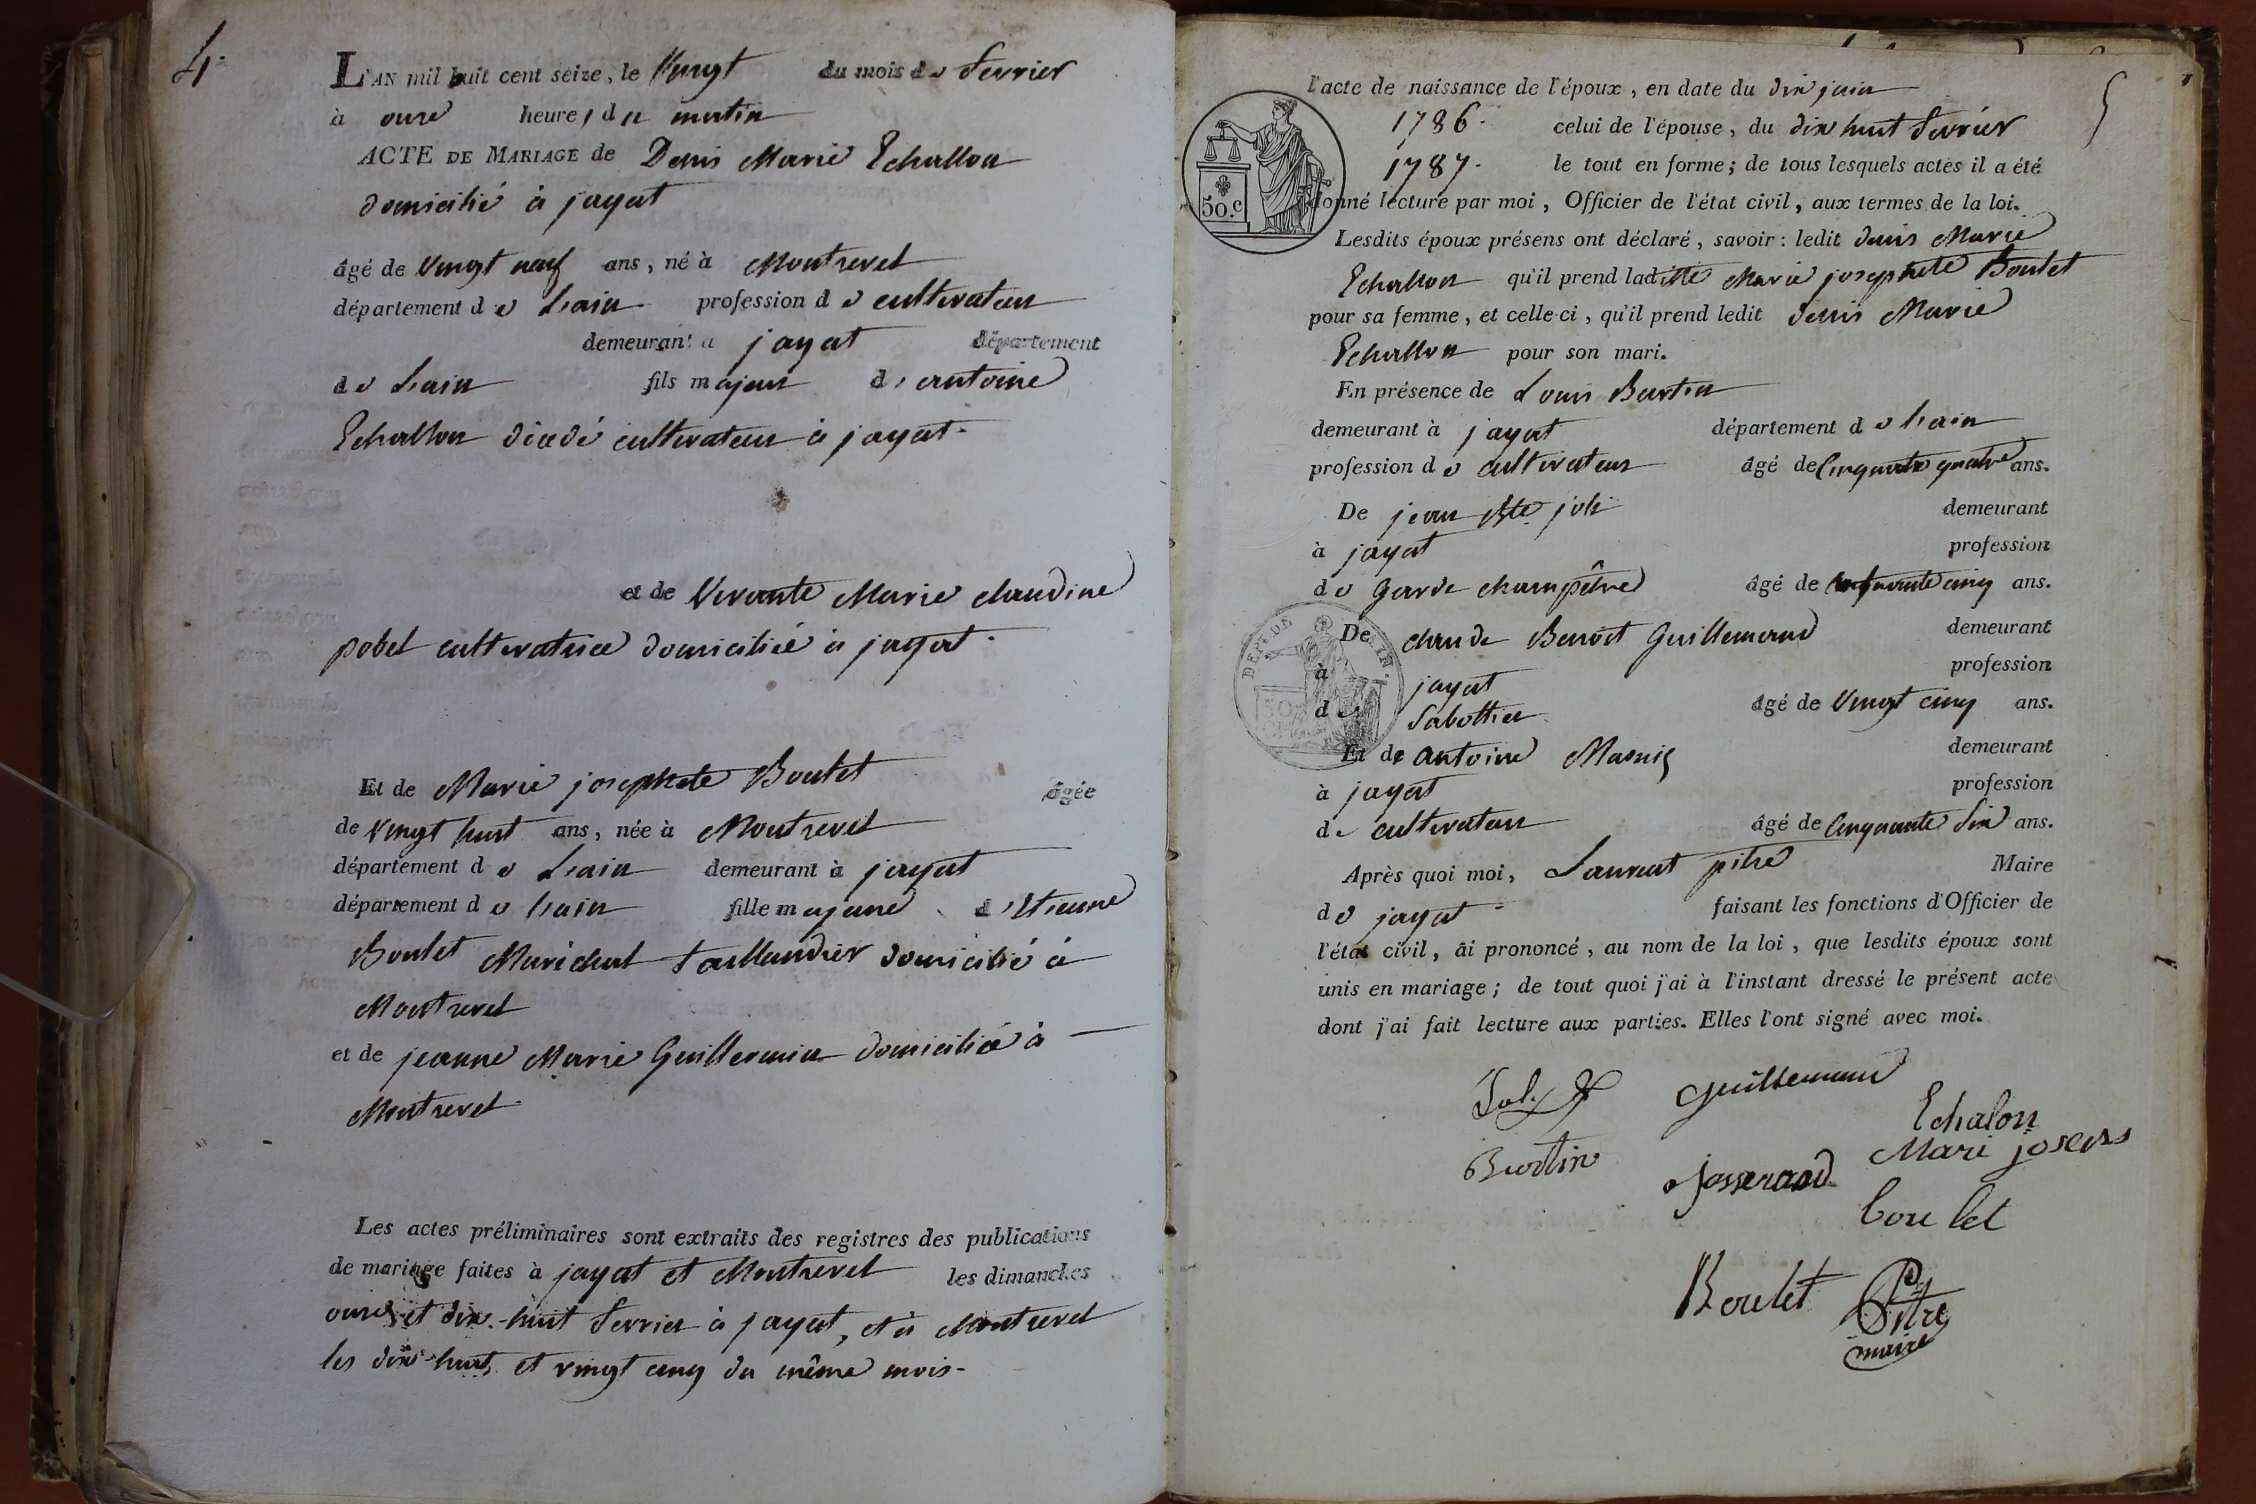 4.
L'AN mil huit cent seize, le Vingt du mois de fevrier
à onze heures du matin
ACTE DE MARIAGE de Denis Marie Echallon
domicilié à jayat
âgé de Vingt neuf ans, né à Montrevel
département de L'ain profession de cultivateur
demeurant à jayat département
de L'ain fils majeur d'antoine
Echallon décédé cultivateur à jayat.
et de Vivante Marie claudine
pobel cultivatrice domiciliée à jayat.
Et de Marie josephete Boulet âgée
de vingt huit ans, née à Montrevel
département de L'ain demeurant à jayat
département de L'ain fille majeure d'Etienne
Boulet Maréchal taillandier domicilié à
Montrevel
et de jeanne Marie Guillermin domiciliée à
Montrevel.
Les actes préliminaires sont extraits des registres des publications
de mariage faites à jayat et Montrevel les dimanches
onze et dix-huit fevrier à jayat, et à Montrevel
les dix-huit et vingt cinq du même mois.
5
l'acte de naissance de l'époux, en date du dix juin
1786. celui de l'épouse, du dix huit fevrier
1787. le tout en forme; de tous lesquels actes il a été
donné lecture par moi, Officier de l'état civil, aux termes de la loi.
50.c
Lesdits époux présens ont déclaré, savoir: ledit denis Marie
Echallon qu'il prend laditte Marie josephete Boulet
pour sa femme, et celle-ci, qu'il prend ledit denis Marie
Echallon pour son mari.
En présence de Louis Burtin
demeurant à jayat département de L'ain
profession de cultivateur âgé de Cinquante quatre ans.
De jean Bte joli demeurant
à jayat profession
de Garde champêtre âgé de cinq ans.
De claude Benoit Guillemaud demeurant
à jayat profession
de Sabottier âgé de Vingt cinq ans.
DEPT DE L'AIN
Et de antoine demeurant
à jayat profession
de cultivateur âgé de Cinquante Six ans.
Après quoi moi, Laurent pitre Maire
de jayat faisant les fonctions d'Officier de
l'état civil, ai prononcé, au nom de la loi, que lesdits époux sont
unis en mariage; de tout quoi j'ai à l'instant dressé le présent acte
dont j'ai fait lecture aux parties. Elles l'ont signé avec moi.
Guillemaud
Echalon
Burtin
Josserand
Mari
boulet
Boulet
Pitre
maire